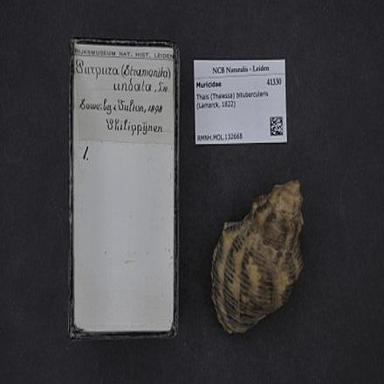 RIJKSMUSEUM NAT. HIST. LEIDEN
Purpura (Stramonita)
undata, Lm.
Sowerby & Fulton, 1898
Philippijnen.
1.
NCB Naturalis - Leiden
Muricidae 41330
Thais (Thalessa) bitubercularis
(Lamarck, 1822)
RMNH.MOL.132668